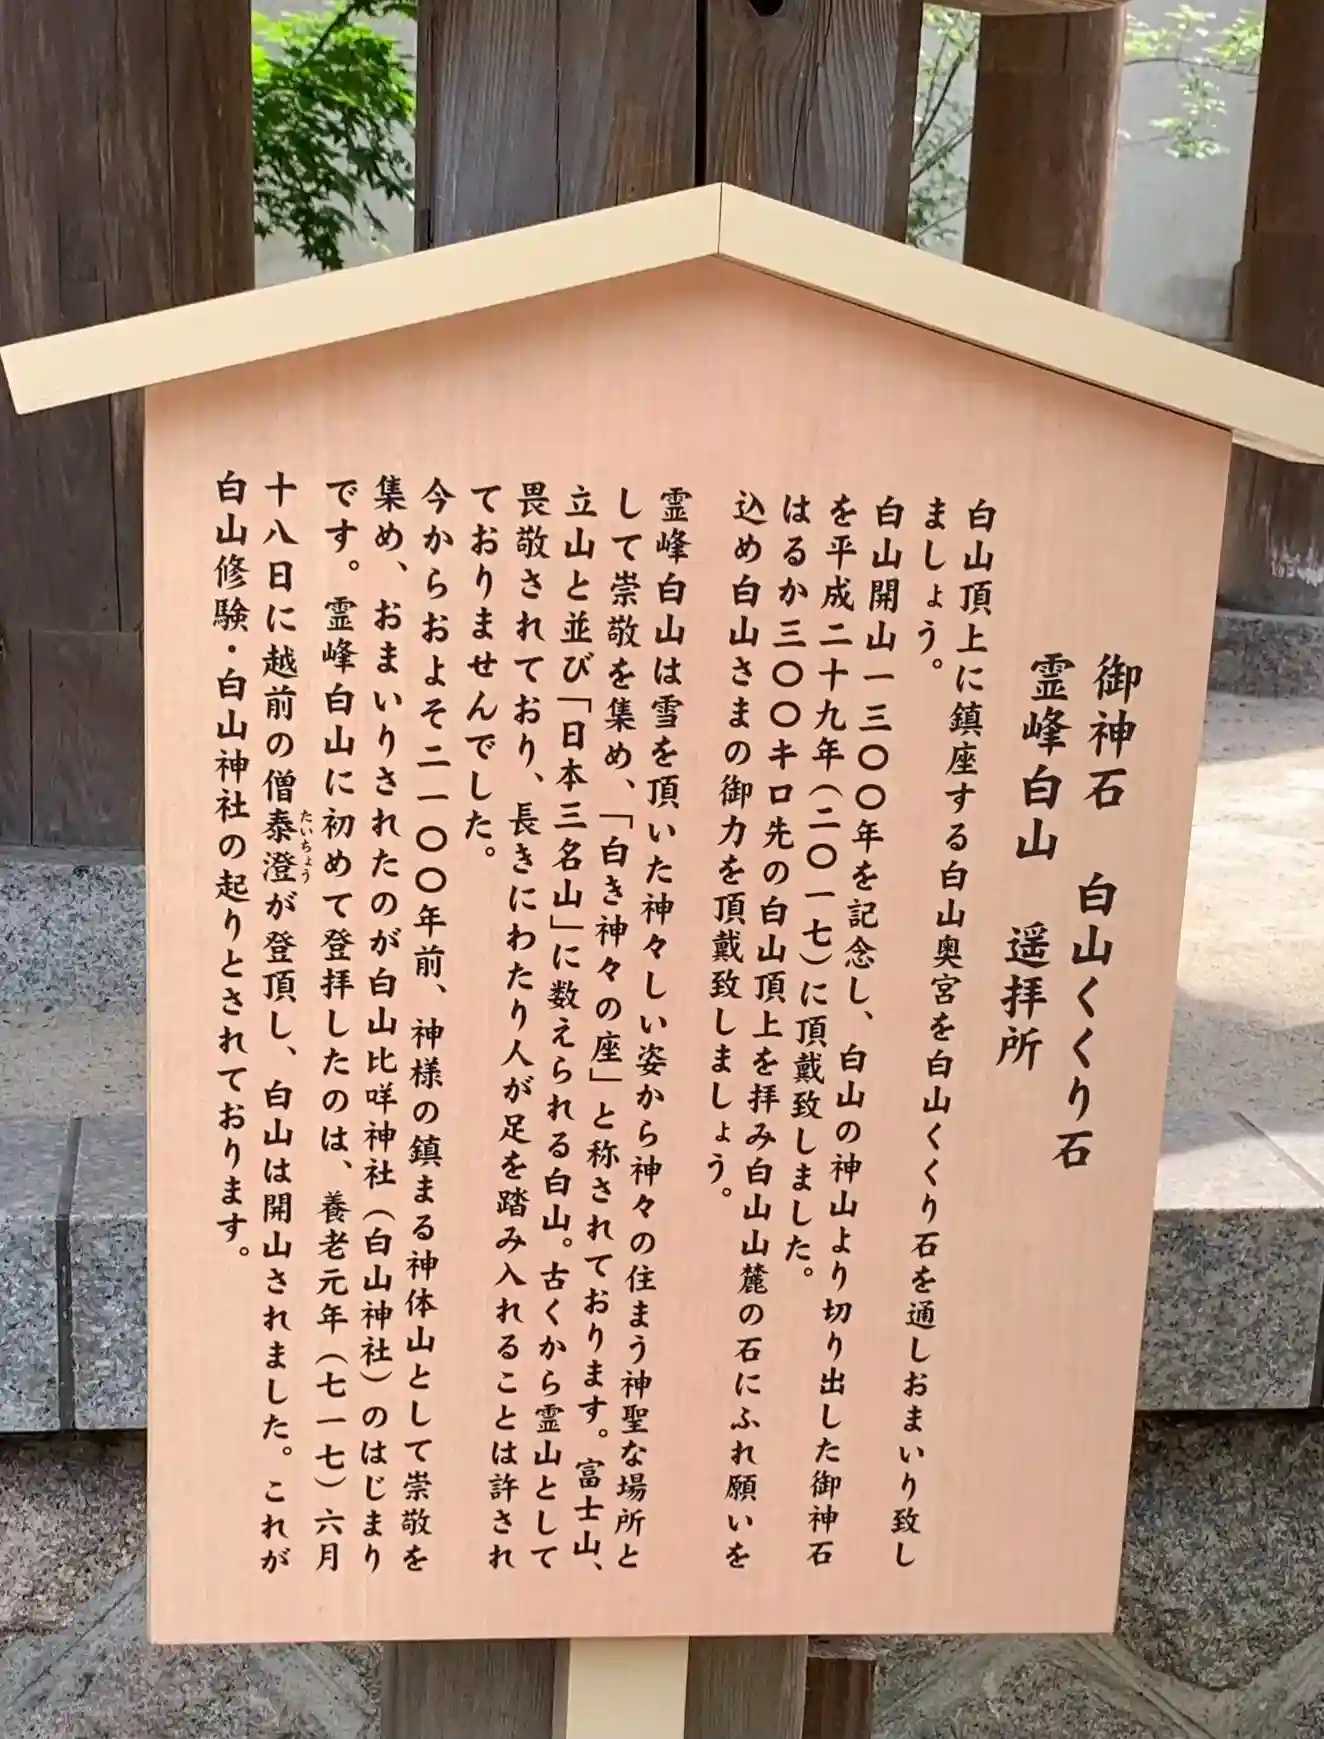 御神石　白山くくり石
霊峰白山　遥拝所
白山頂上に鎮座する白山奥宮を白山くくり石を通しおまいり致し
ましょう。
白山開山一三〇〇年を記念し、白山の神山より切り出した御神石
を平成二十九年（二〇一七）に頂戴致しました。
はるか三〇〇キロ先の白山頂上を拝み白山山麓の石にふれ願いを
込め白山さまの御力を頂戴致しましょう。
霊峰白山は雪を頂いた神々しい姿から神々の住まう神聖な場所と
して崇敬を集め、「白き神々の座」と称されております。富士山、
立山と並び「日本三名山」に数えられる白山。古くから霊山として
畏敬されており、長きにわたり人が足を踏み入れることは許され
ておりませんでした。
今からおよそ二一〇〇年前、神様の鎮まる神体山として崇敬を
集め、おまいりされたのが白山比咩神社（白山神社）のはじまり
です。霊峰白山に初めて登拝したのは、養老元年（七一七）六月
たいちょう
十八日に越前の僧泰澄が登頂し、白山は開山されました。これが
白山修験・白山神社の起りとされております。